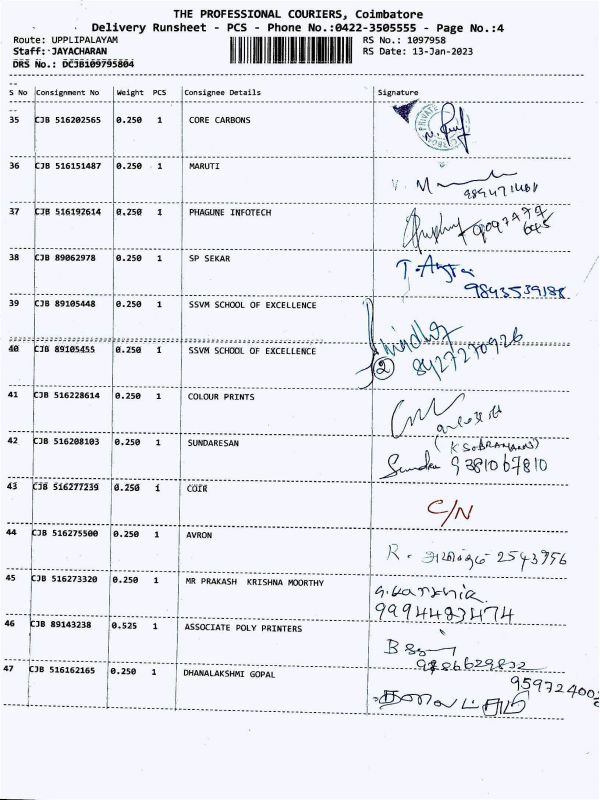 THE PROFESSIONAL COURIERS, Coimbatore
Delivery Runsheet - PCS - Phone No.:0422-3505555 - Page No.:4
Route: UPPLIPALAYAM RS No.: 1097958
Staff: JAYACHARAN RS Date: 13-Jan-2023
DRS No.: DCJB109795804
S No Consignment No Weight PCS Consignee Details Signature
35 CJB 516202565 0.250 1 CORE CARBONS
PRIVATE
36 CJB 516151487 0.250 1 MARUTI
37 CJB 516192614 0.250 1 PHAGUNE INFOTECH
38 CJB 89062978 0.250 1 SP SEKAR
9843539188
39 CJB 89105448 0.250 1 SSVM SCHOOL OF EXCELLENCE
40 CJB 89105455 0.250 1 SSVM SCHOOL OF EXCELLENCE
2 8427270926
41 CJB 516228614 0.250 1 COLOUR PRINTS
42 CJB 516208103 0.250 1 SUNDARESAN
9381067810
43 CJB 516277239 0.250 1 COIR
C/N
44 CJB 516275500 0.250 1 AVRON
R. 2543956
45 CJB 516273320 0.250 1 MR PRAKASH KRISHNA MOORTHY
9994483474
46 CJB 89143238 0.525 1 ASSOCIATE POLY PRINTERS
47 CJB 516162165 0.250 1 DHANALAKSHMI GOPAL